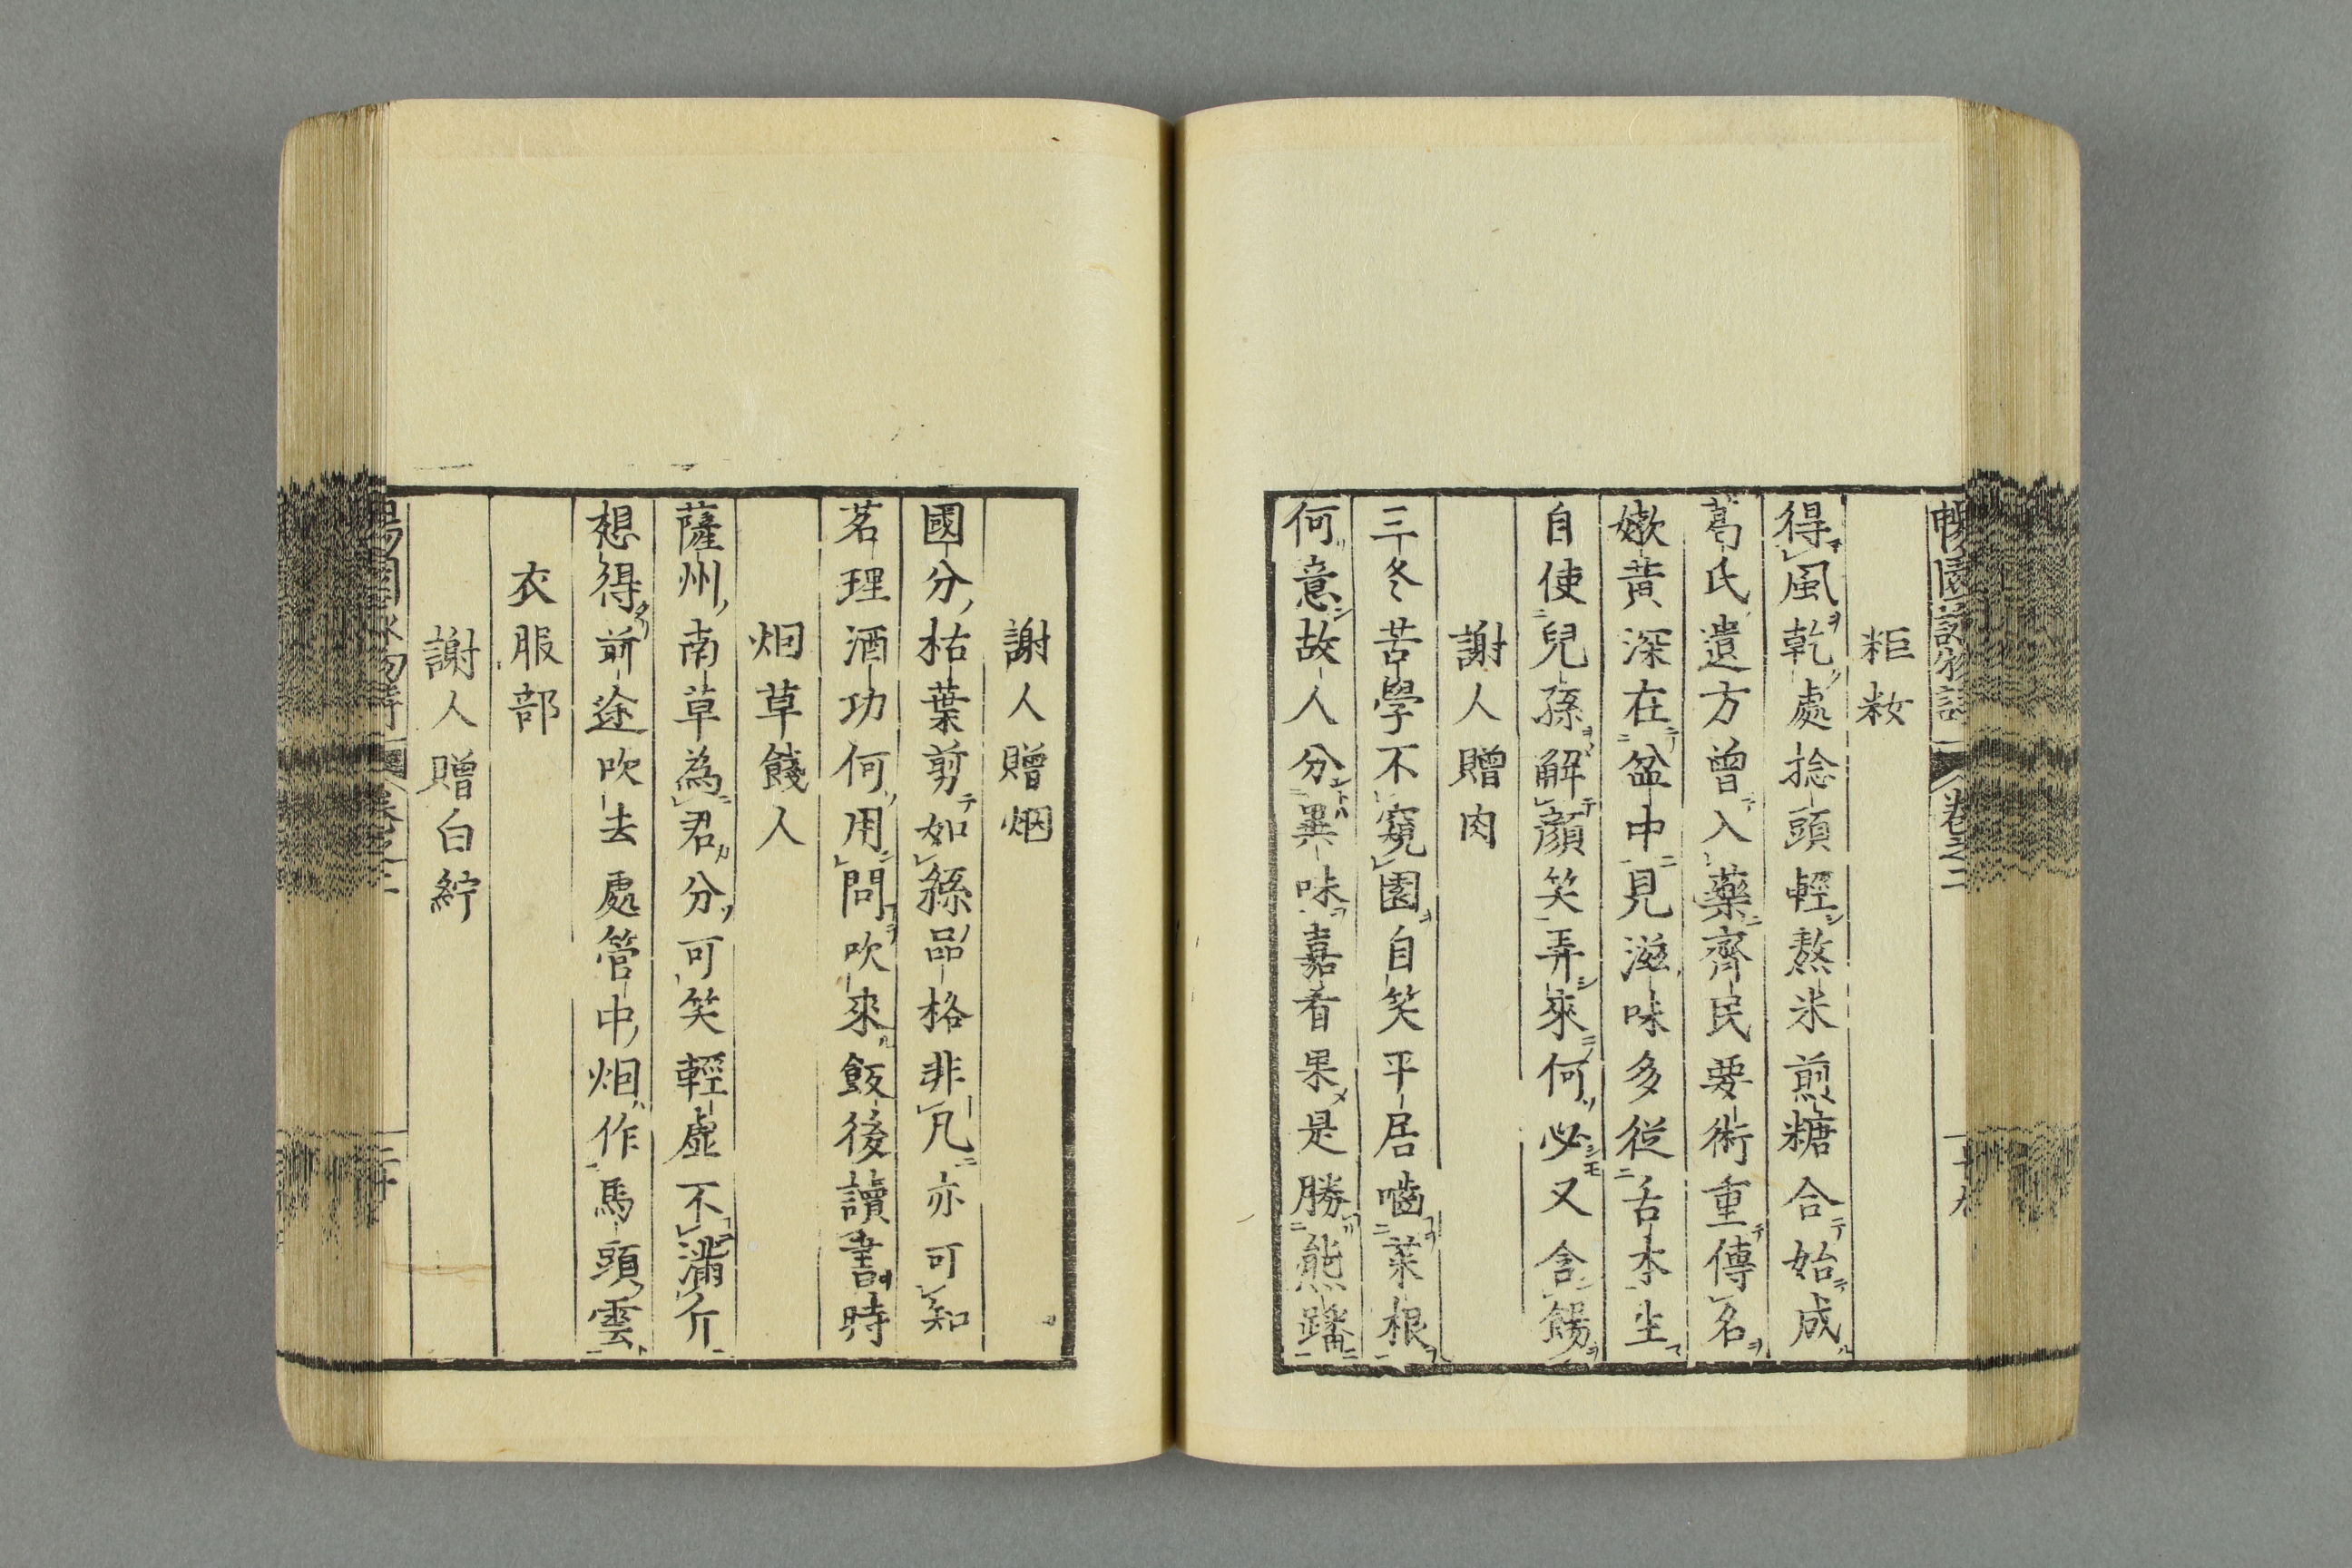 粔籹
得風乾處捻頭輕熬米煎糖合始成
葛氏遺方曾入藥齊民要術重傳名
嫰黄深在盆中見滋味多從舌本生
自使兒孫解顔笑弄來何必又含餳
謝人贈肉
三冬苦學不窺園自笑平居嚙菜根
何意故人分異味嘉肴果是勝熊蹯
謝人贈烟
國分枯葉剪如絲品格非凡亦可知
茗理酒功何用問吹來飯後讀書時
烟草餞人
薩州南草為君分可笑輕虛不滿斤
想得前途吹去處管中烟作馬頭雲
衣服部
謝人贈白紵
卷之二